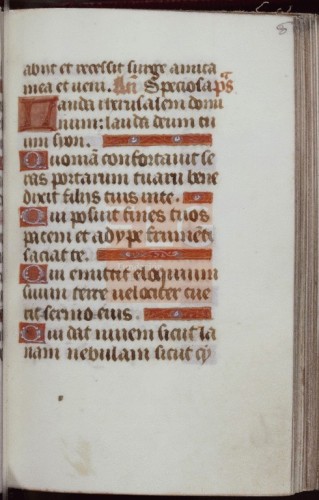 abiit et recessit surge amica
mea et veni. An̄ Speciosa p̄s
Lauda iherusalem domi
num: lauda deum tu
um sion.
Quoniā confortauit se
ras portarum tuarū bene
dixit filijs tuis in te.
Qui posuit fines tuos
pacem et adype frumēti
saciat te.
Qui emittit eloquium
suum terre uelociter cur
rit sermo eius.
Qui dat niuem sicut la
nam nebulam sicut cȳ